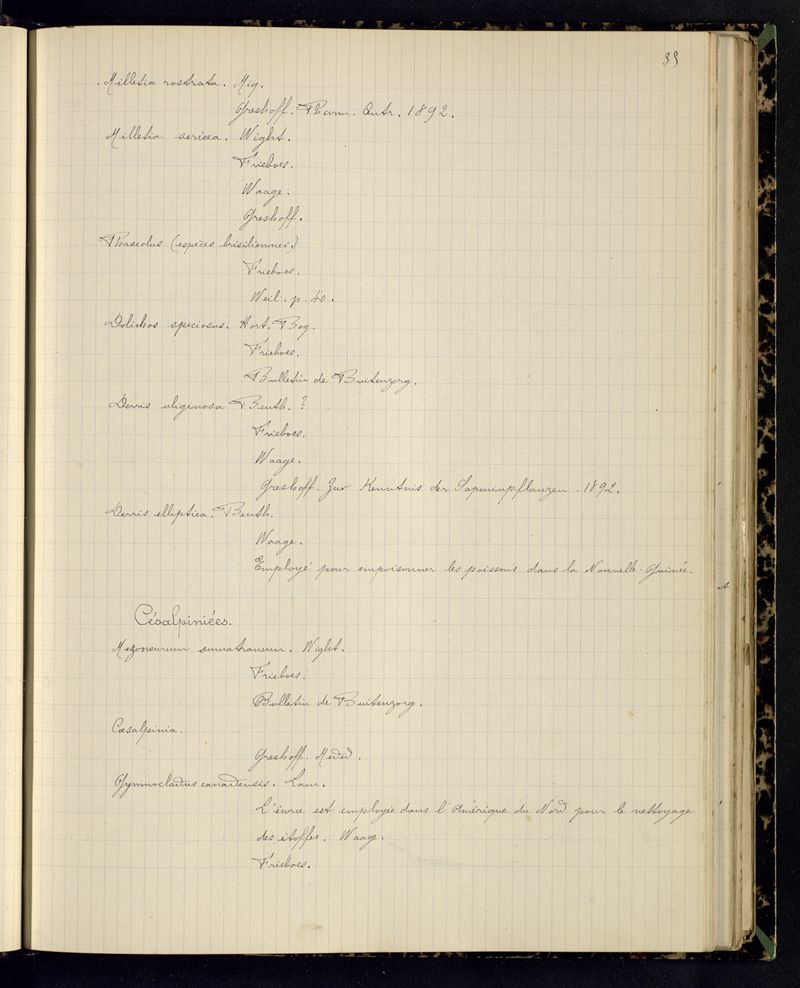 33
Milletia rostrata. Miq.
Greshoff. Pharm. Centr. 1892.
Milletia sericea. Wight.
Frieboes.
Waage.
Greshoff.
Phaseolus (espèces brésiliennes.)
Frieboes.
Weil. p. 40.
Dolichos speciosus. Hort. Bog.
Frieboes.
Bulletin de Buitenzorg.
Derris uliginosa Benth. ?
Frieboes.
Waage.
Greshoff. Zur Kenntnis der Saponinpflanzen. 1892.
Derris elliptica. Benth.
Waage.
Employé pour empoisonner les poissons dans la Nouvelle-Guinée.
Césalpiniées.
Mezoneurum sumatranum. Wight.
Frieboes.
Bulletin de Buitenzorg.
Cæsalpinia.
Greshoff. Meded.
Gymnocladus canadensis. Lam.
L'écorce est employée dans l'Amérique du Nord pour le nettoyage
des étoffes. Waage.
Frieboes.